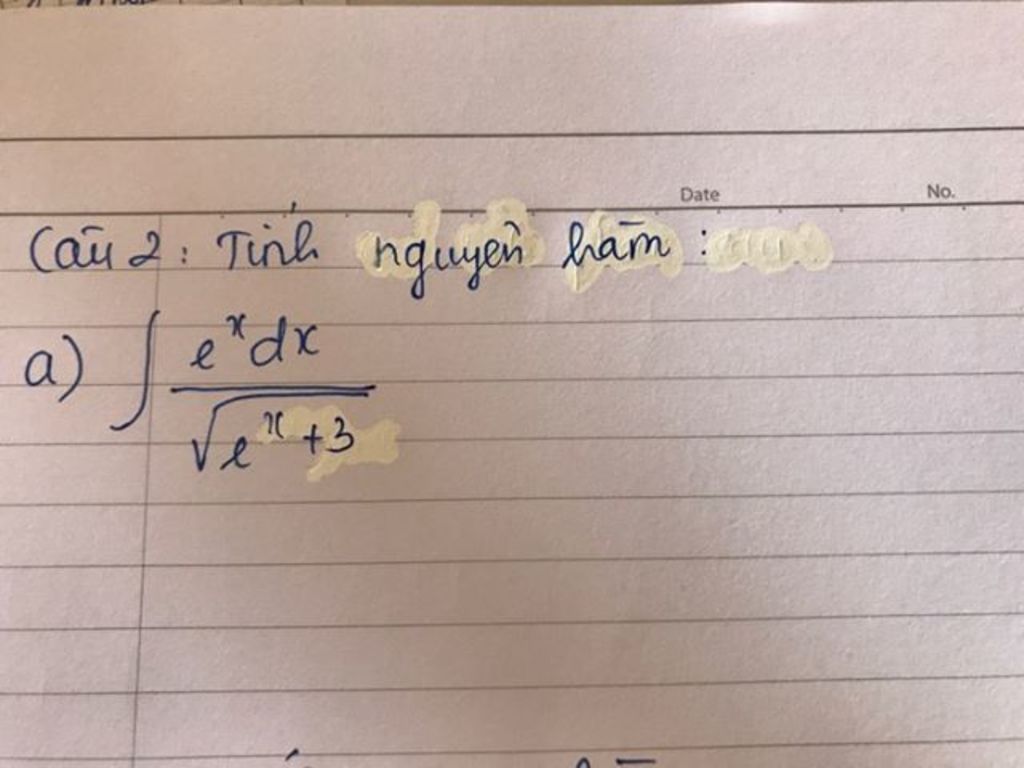 Date No.
Câu 2: Tính nguyên hàm:
a) ∫ e^x dx / √(e^x + 3)